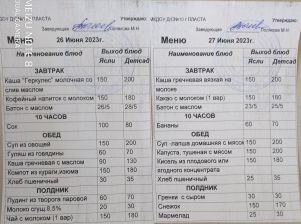 МБДОУ ДС № 10 г.ПЛАСТА
Утверждаю:
Заведующая
Полякова М.Н
Меню
26 Июня 2023г.
Наименование блюд
Выход блюд
Ясли
Детсад
ЗАВТРАК
Каша "Геркулес" молочная со слив маслом
150
200
Кофейный напиток с молоком
150
180
Батон с маслом
25/5
25/5
10 ЧАСОВ
Сок
100
80
ОБЕД
Суп из овощей
150
200
Гуляш из говядины
60
70
Каша гречневая с маслом
90
130
Компот из кураги,изюма
150
180
Хлеб пшеничный
30
35
ПОЛДНИК
Пудинг из творога паровой
60
70
Молоко сгущ 8,5%
20
30
Чай с молоком (1 вар)
150
180
МБДОУ ДС № 10 г.ПЛАСТА
Утверждаю:
Заведующая
Полякова М.Н
Меню
27 Июня 2023г.
Наименование блюд
Выход блюд
Ясли
Детсад
ЗАВТРАК
Каша гречневая вязкая на молоке
150
200
Какао с молоком (1 вар)
150
180
Батон с маслом
23/5
25/5
10 ЧАСОВ
Бананы
60
70
ОБЕД
Суп -лапша домашняя с мясом
150
200
Капуста, тушеная с мясом
150
200
Кисель из плодового или ягодного концентрата
150
180
Хлеб пшеничный
25
35
ПОЛДНИК
Гренки с сыром
30
30
Снежок
150
170
Мармелад
25
30